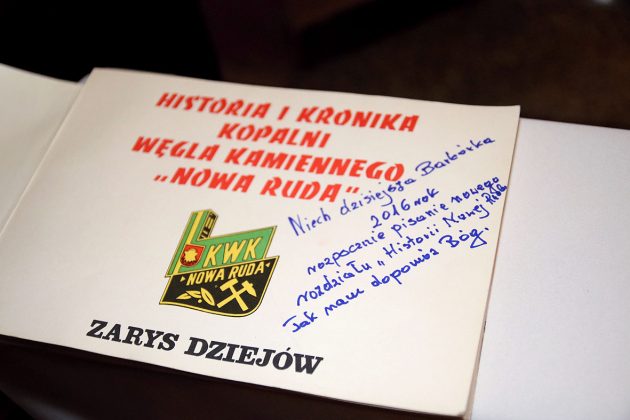 HISTORIA I KRONIKA
KOPALNI
WĘGLA KAMIENNEGO
„NOWA RUDA”
KWK
NOWA RUDA
ZARYS DZIEJÓW
Niech dzisiejsza Barbórka
2016 rok
rozpocznie pisanie nowego
rozdziału „Historii Nowej Rudy
Jak nam dopomoż Bóg.